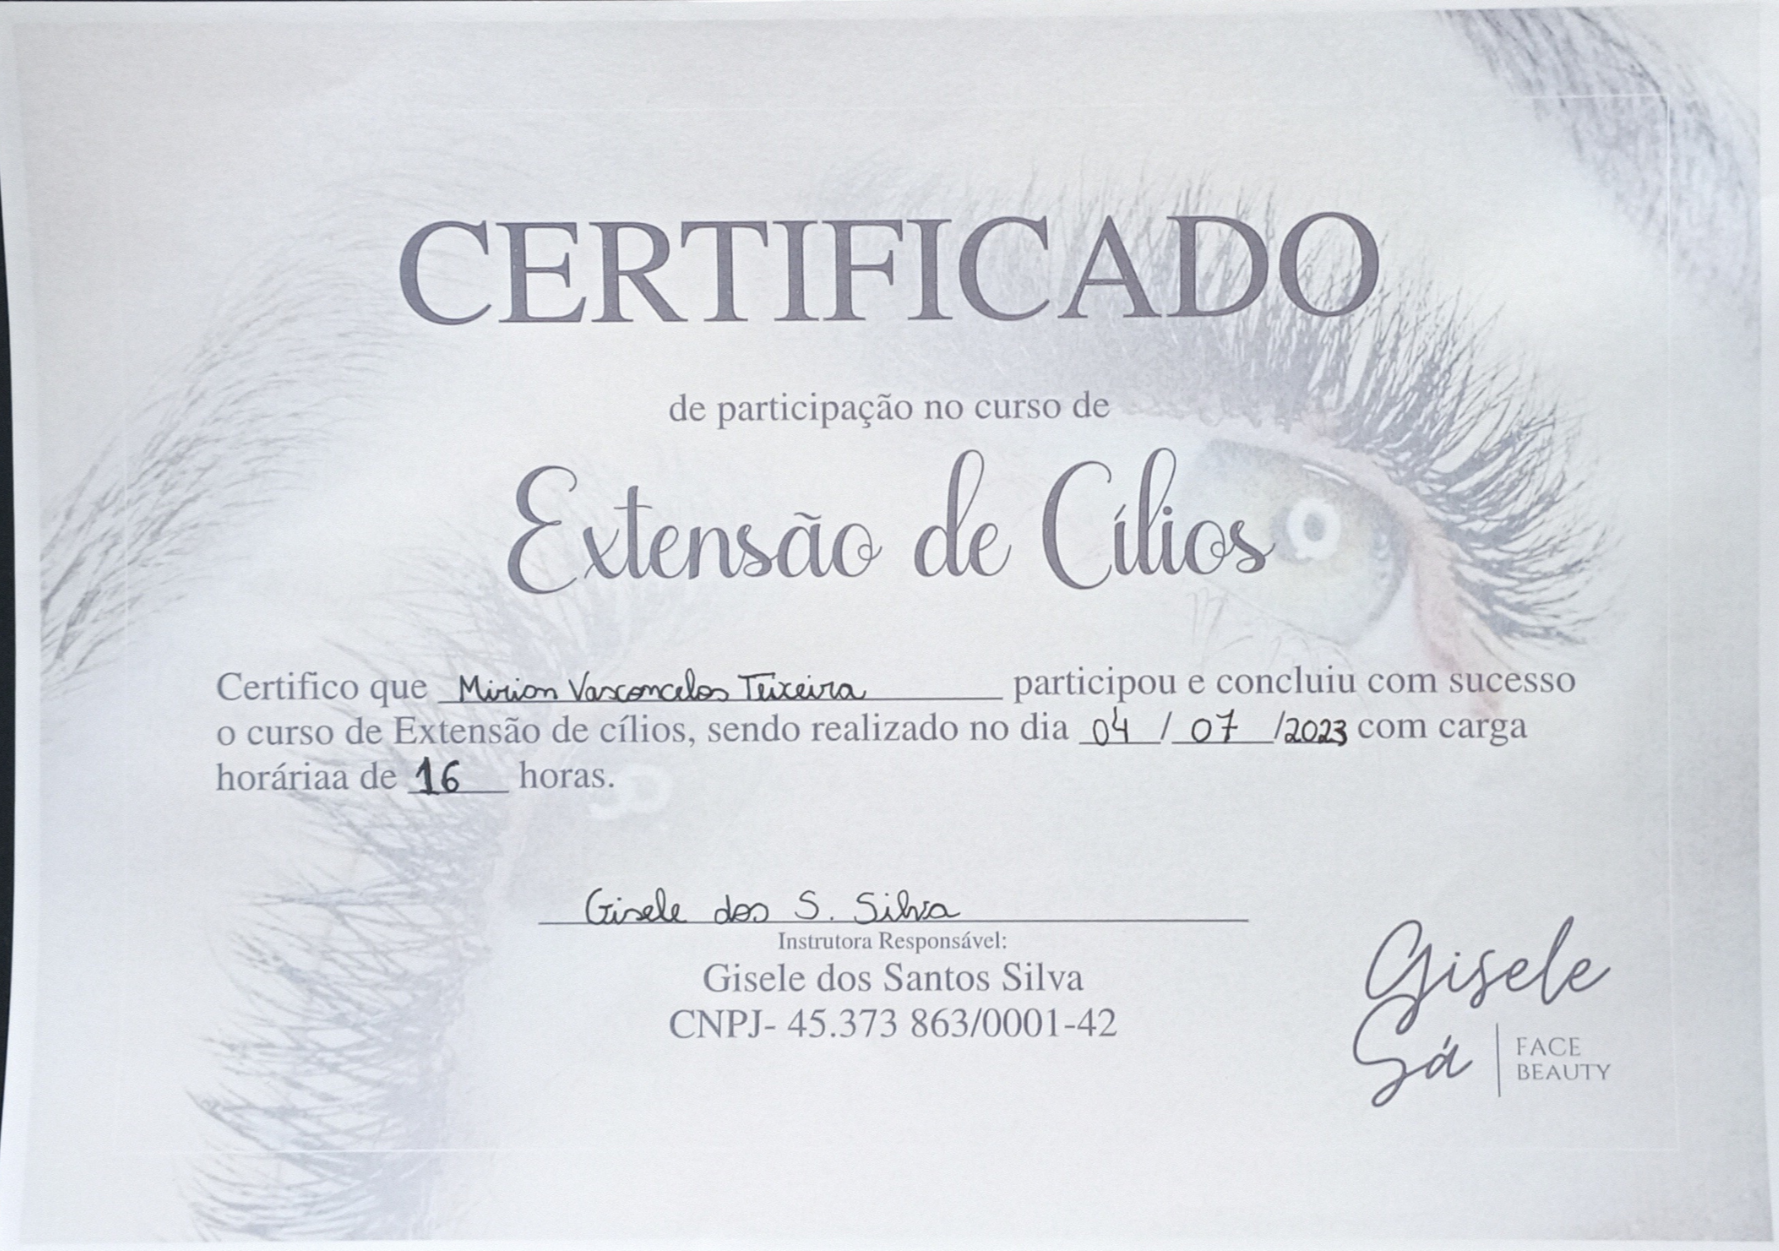 CERTIFICADO
de participação no curso de
Extensão de Cílios
Certifico que Mirian Vasconcelos Teixeira participou e concluiu com sucesso
o curso de Extensão de cílios, sendo realizado no dia 04 / 07 /2023 com carga
horáriaa de 16 horas.
Gisele dos S. Silva
Instrutora Responsável:
Gisele dos Santos Silva
CNPJ- 45.373 863/0001-42
Gisele
Sá
FACE
BEAUTY